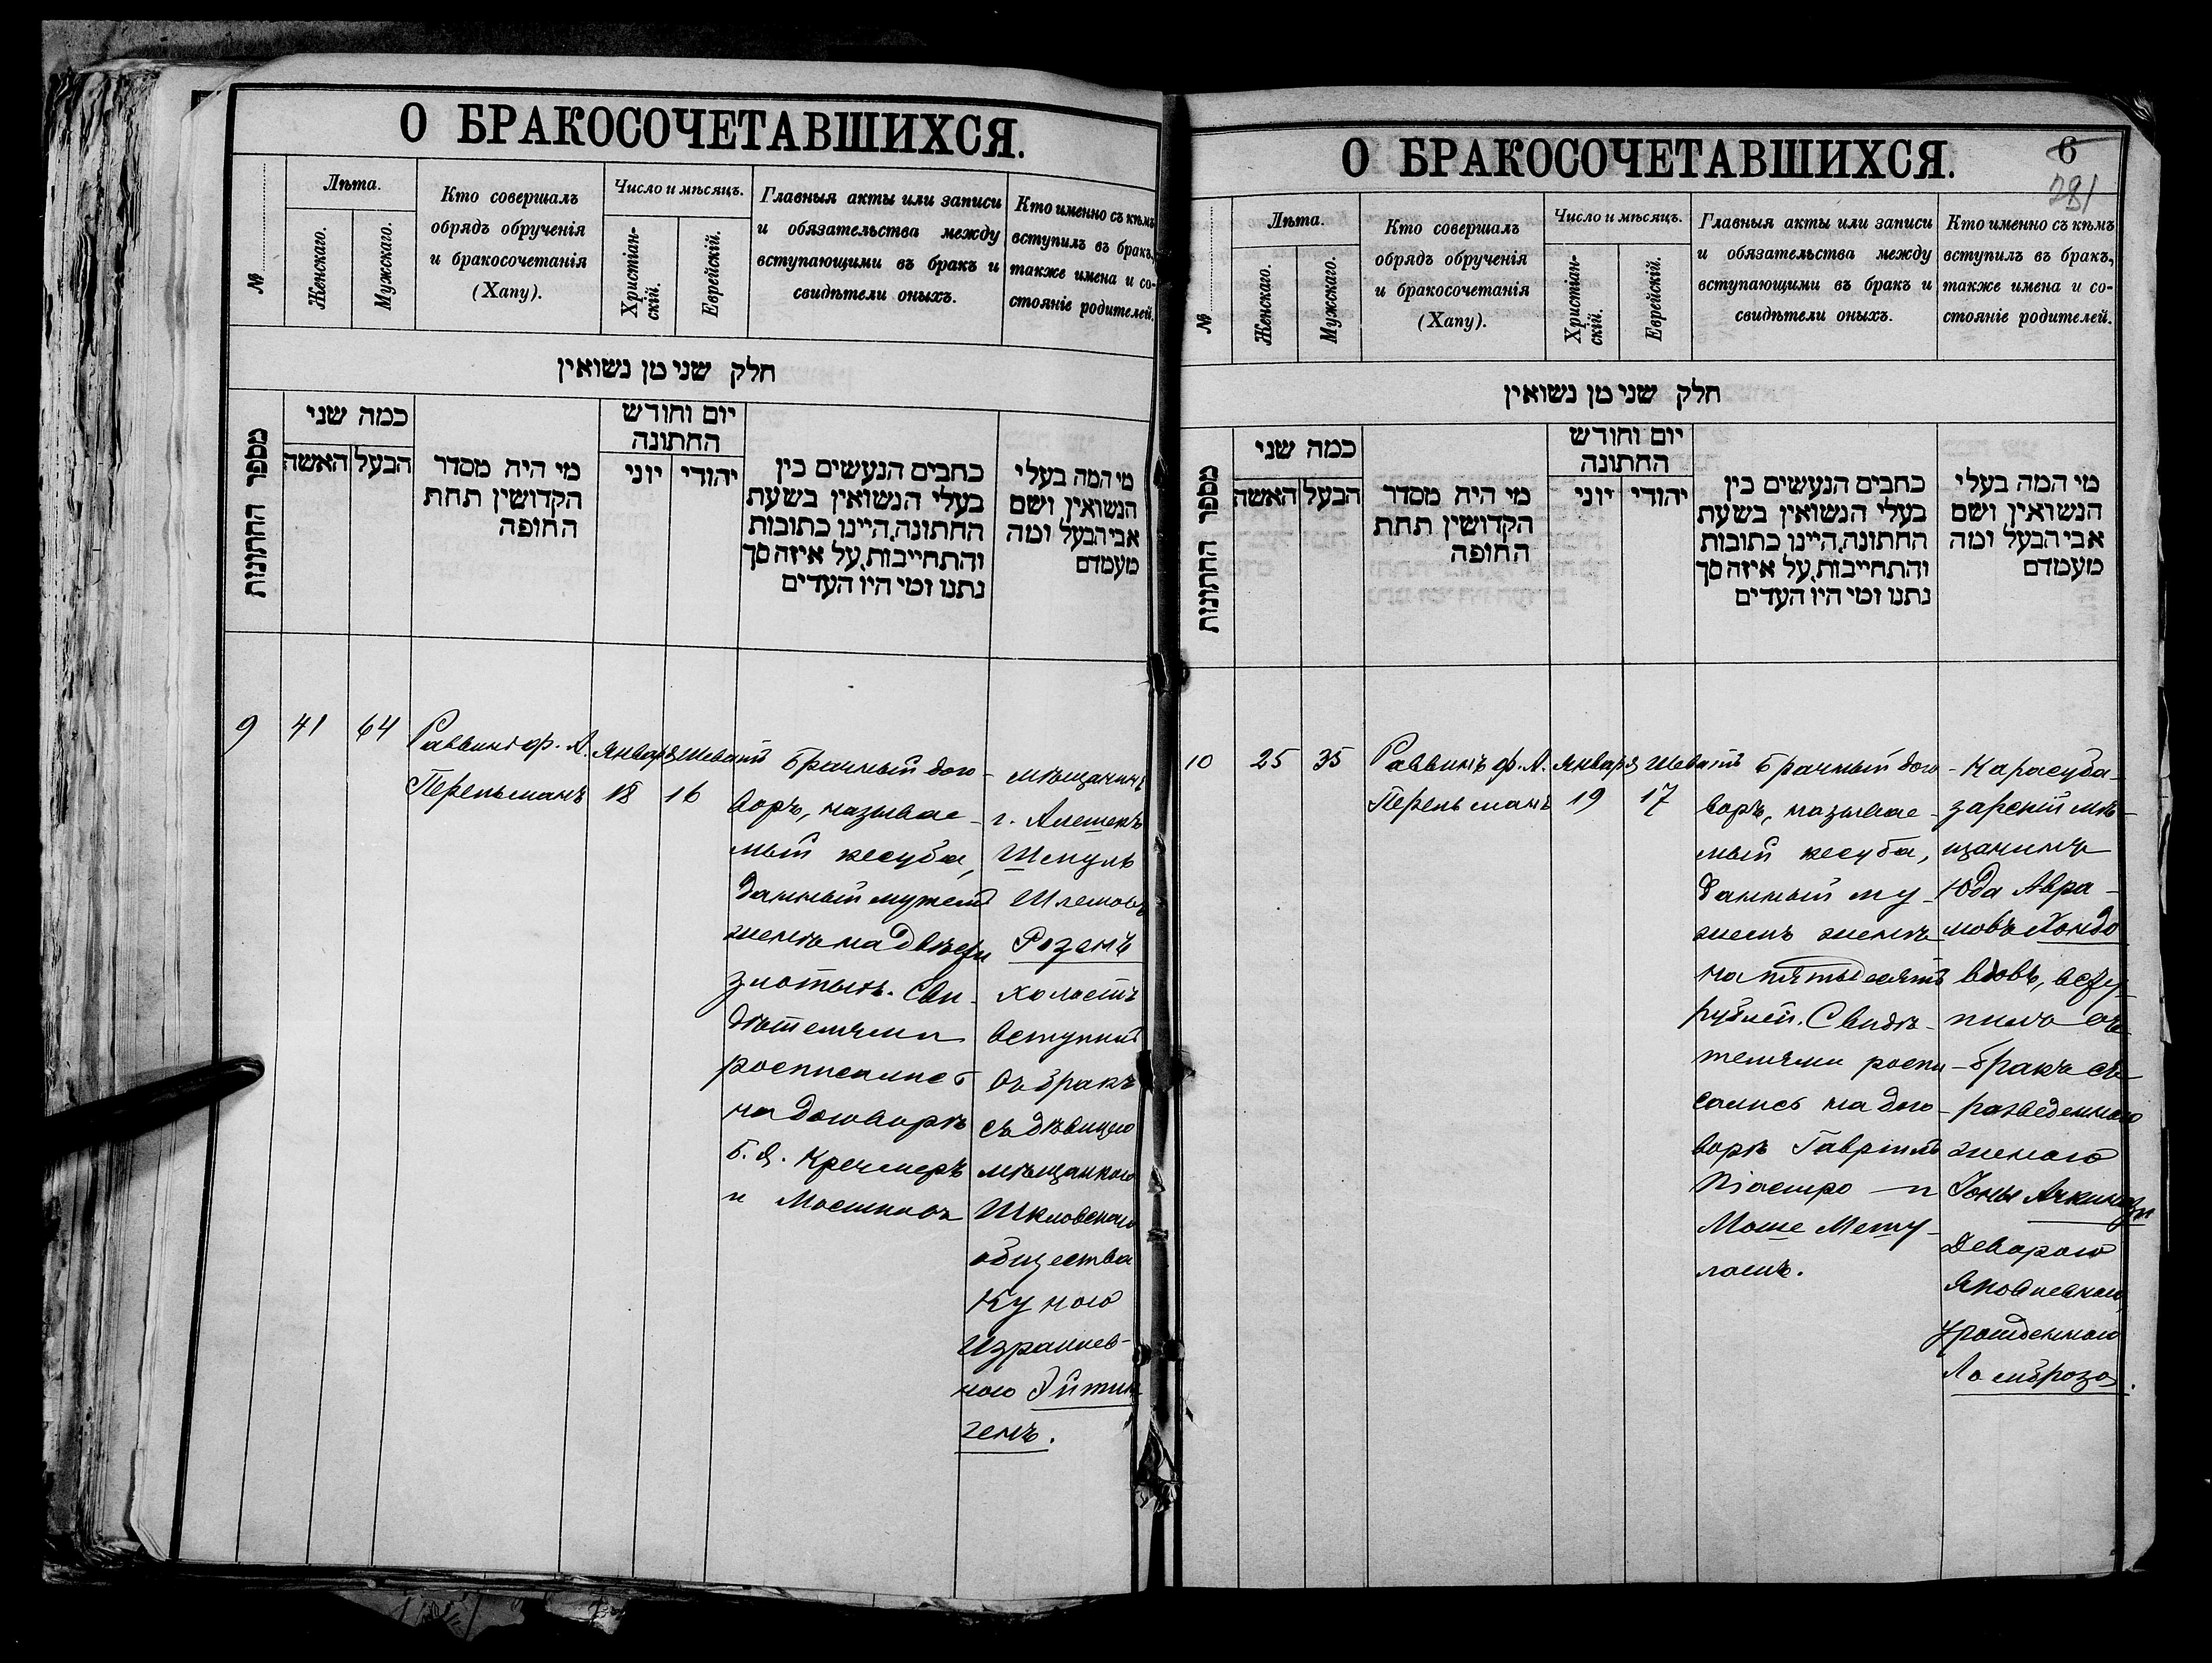 О БРАКОСОЧЕТАВШИХСЯ.
№
Лѣта.
Женскаго.
Мужскаго.
Кто совершалъ
обрядъ обрученія
и бракосочетанія
(Хапу).
Число и мѣсяцъ.
Христіан-
скій.
Еврейскій.
Главныя акты или записи
и обязательства между
вступающими въ бракъ и
свидѣтели оныхъ.
Кто именно съ кѣмъ
вступилъ въ бракъ,
также имена и со-
стояніе родителей.
חלק שני מן נשואין
מספר החתונות
כמה שני
האשה
הבעל
מי היה מסדר
הקדושין תחת
החופה
יום וחודש
החתונה
יוני
יהודי
כתבים הנעשים בין
בעלי הנשואין בשעת
החתונה, היינו כתובות
והתחייבות, על איזה סך
נתנו ומי היו העדים
מי המה בעלי
הנשואין ושם
אבי הבעל ומה
מעמדם
9
41
64
Раввинъ ф. А.
Перельманъ
Января
18
Шеватъ
16
Брачный дого-
воръ, называе-
мый кесуба,
данный мужемъ
женѣ на двѣсти
злотыхъ. Сви-
дѣтелями
росписались
на договорѣ
Б. Я. Кречмеръ
и
мѣщанинъ
г. Алешекъ
Шмуль
Шлемовъ
Розенъ
холостъ
вступилъ
въ бракъ
съ дѣвицею
мѣщанкою
Шкловскаго
общества
Куною
Израилев-
ною Эйтин-
генъ.
О БРАКОСОЧЕТАВШИХСЯ.
6
281
№
Лѣта.
Женскаго.
Мужскаго.
Кто совершалъ
обрядъ обрученія
и бракосочетанія
(Хапу).
Число и мѣсяцъ.
Христіан-
скій.
Еврейскій.
Главныя акты или записи
и обязательства между
вступающими въ бракъ и
свидѣтели оныхъ.
Кто именно съ кѣмъ
вступилъ въ бракъ,
также имена и со-
стояніе родителей.
חלק שני מן נשואין
מספר החתונות
כמה שני
האשה
הבעל
מי היה מסדר
הקדושין תחת
החופה
יום וחודש
החתונה
יוני
יהודי
כתבים הנעשים בין
בעלי הנשואין בשעת
החתונה, היינו כתובות
והתחייבות, על איזה סך
נתנו ומי היו העדים
מי המה בעלי
הנשואין ושם
אבי הבעל ומה
מעמדם
10
25
35
Раввинъ ф. А.
Перельманъ
Января
19
Шеватъ
17
Брачный дого-
воръ, называе-
мый кесуба,
данный му-
жемъ женѣ
на пятьдесятъ
рублей. Свидѣ-
телями роспи-
сались на дого-
ворѣ Гавріилъ
Піастро и
Моше Мешу-
ламъ.
Карасуба-
зарскій мѣ-
щанинъ
Юда Авра-
мовъ Хондо
вдовъ, всту-
пилъ въ
бракъ съ
разведенною
женою
Іоны Ачкинази
Деворою
Яковлевною,
урожденною
Ломброзо.